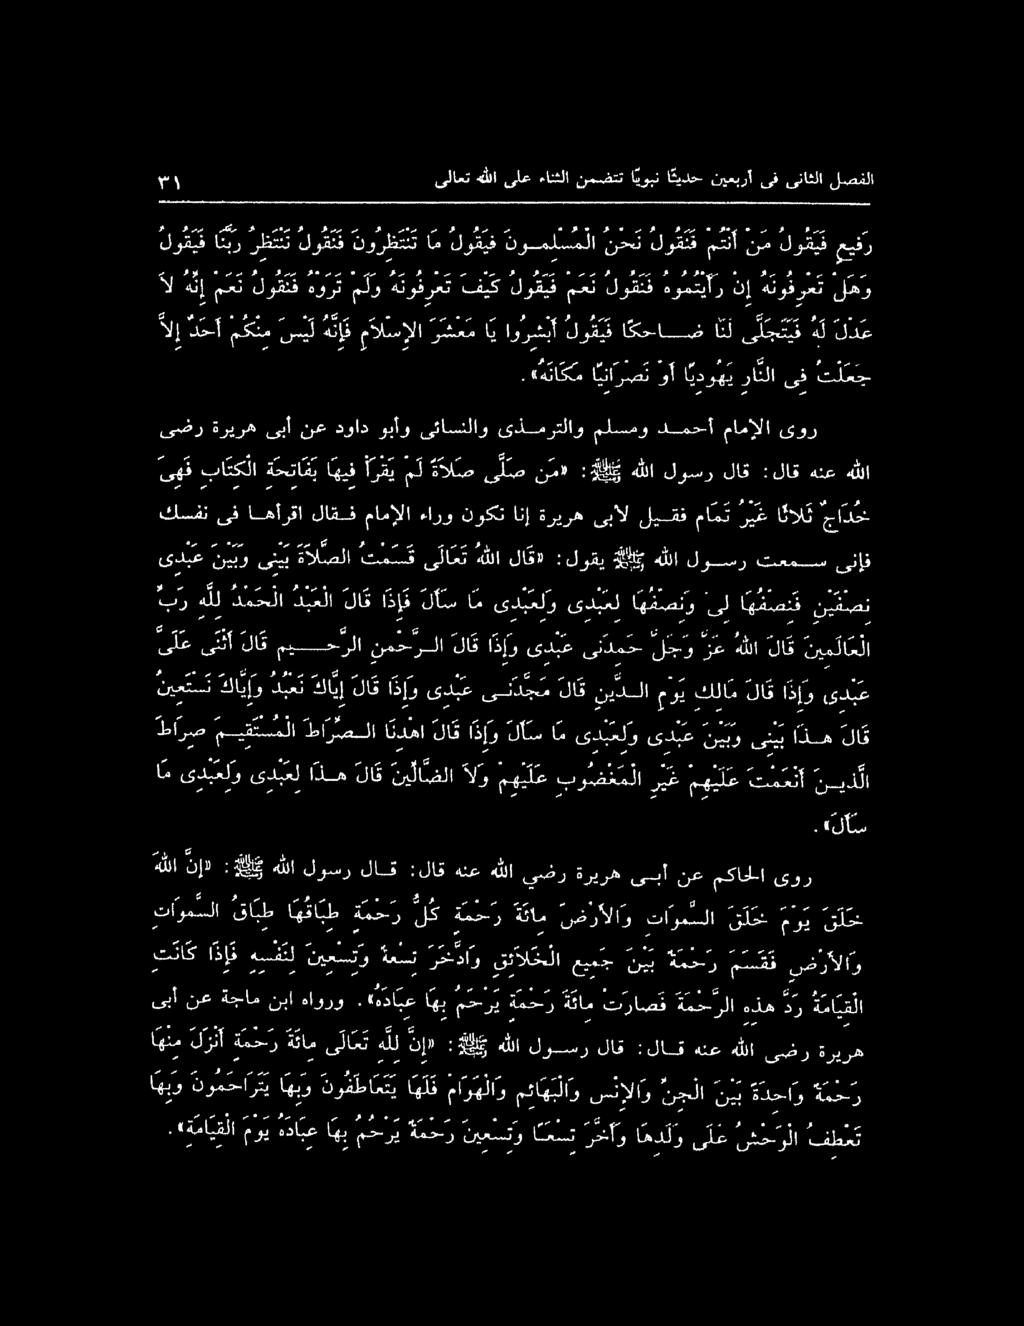 الفصل الثانى فى أربعين حديثًا نبويًا تتضمن الثناء على الله تعالى ٣١
رَفيعٍ فَيَقُولُ مَنْ أَنْتُمْ فَنَقُولُ نَحْنُ الْمُسْلِمُونَ فَيَقُولُ مَا تَنْتَظِرُونَ فَنَقُولُ نَنْتَظِرُ رَبَّنَا فَيَقُولُ
وَهَلْ تَعْرِفُونَهُ إِنْ رَأَيْتُمُوهُ فَنَقُولُ نَعَمْ فَيَقُولُ كَيْفَ تَعْرِفُونَهُ وَلَمْ تَرَوْهُ فَنَقُولُ نَعَمْ إِنَّهُ لاَ
عَدْلَ لَهُ فَيَتَجَلَّى لَنَا ضَاحِكًا فَيَقُولُ أَبْشِرُوا يَا مَعْشَرَ الإِسْلاَمِ فَإِنَّهُ لَيْسَ مِنْكُمْ أَحَدٌ إِلاَّ
جَعَلْتُ فِى النَّارِ يَهُودِيًا أَوْ نَصْرَانِيًا مَكَانَهُ» .
روى الإمام أحمد ومسلم والترمذى والنسائى وأبو داود عن أبى هريرة رضى
الله عنه قال : قال رسول الله ﷺ : «مَن صَلَّى صَلاَةً لَمْ يَقْرَأْ فِيهَا بِفَاتِحَةِ الْكِتَابِ فَهِىَ
خِدَاجٌ ثَلاَثًا غَيْرُ تَمَام فقيل لأبى هريرة إنا نكون وراء الإمام فقال اقرأها فى نفسك
فإنى سمعت رسول الله ﷺ يقول : «قَالَ اللهُ تَعَالَى قَسَمْتُ الصَّلاَةَ بَيْنِى وَبَيْنَ عَبْدِى
نِصْفَيْنِ فَنِصْفُهَا لِى وَنِصْفُهَا لِعَبْدِى وَلِعَبْدِى مَا سَأَلَ فَإِذَا قَالَ الْعَبْدُ الْحَمْدُ لِلَّهِ رَبِّ
الْعَالَمِينَ قَالَ اللهُ عَزَّ وَجَلَّ حَمِدَنِى عَبْدِى وَإِذَا قَالَ الرَّحْمنِ الرَّحِيمِ قَالَ أَثْنَى عَلَىَّ
عَبْدِى وَإِذَا قَالَ مَالِكِ يَوْمِ الدِّينِ قَالَ مَجَّدَنِى عَبْدِى وَإِذَا قَالَ إِيَّاكَ نَعْبُدُ وَإِيَّاكَ نَسْتَعِينُ
قَالَ هذَا بَيْنِى وَبَيْنَ عَبْدِى وَلِعَبْدِى مَا سَأَلَ وَإِذَا قَالَ اهْدِنَا الصِّرَاطَ الْمُسْتَقِيمَ صِرَاطَ
الَّذِينَ أَنْعَمْتَ عَلَيْهِمْ غَيْرِ الْمَغْضُوبِ عَلَيْهِمْ وَلاَ الضَّالِّينَ قَالَ هذَا لِعَبْدِى وَلِعَبْدِى مَا
سَأَلَ» .
روى الحاكم عن أبى هريرة رضي الله عنه قال : قال رسول الله ﷺ : «إِنَّ اللهَ
خَلَقَ يَوْمَ خَلَقَ السَّموَاتِ وَالأَرْضَ مِائَةَ رَحْمَةٍ كُلُّ رَحْمَةٍ طِبَاقُهَا طِبَاقُ السَّموَاتِ
وَالأَرْضِ فَقَسَمَ رَحْمَةً بَيْنَ جَمِيعِ الْخَلاَئِقِ وَادَّخَرَ تِسْعَةً وَتِسْعِينَ لِنَفْسِهِ فَإِذَا كَانَتِ
الْقِيَامَةُ رَدَّ هذِهِ الرَّحْمَةَ فَصَارَتْ مِائَةَ رَحْمَةٍ يَرْحَمُ بِهَا عِبَادَهُ» . ورواه ابن ماجة عن أبى
هريرة رضى الله عنه قال : قال رسول الله ﷺ : «إِنَّ لِلَّهِ تَعَالَى مِائَةَ رَحْمَةٍ أَنْزَلَ مِنْهَا
رَحْمَةً وَاحِدَةً بَيْنَ الْجِنِّ وَالإِنْسِ وَالْبَهَائِمِ وَالْهَوَامِّ فَلَهَا يَتَعَاطَفُونَ وَبِهَا يَتَرَاحَمُونَ وَبِهَا
تَعْطِفُ الْوَحْشُ عَلَى وَلَدِهَا وَأَخَّرَ تِسْعًا وَتِسْعِينَ رَحْمَةً يَرْحُمُ بِهَا عِبَادَهُ يَوْمَ الْقِيَامَةِ» .